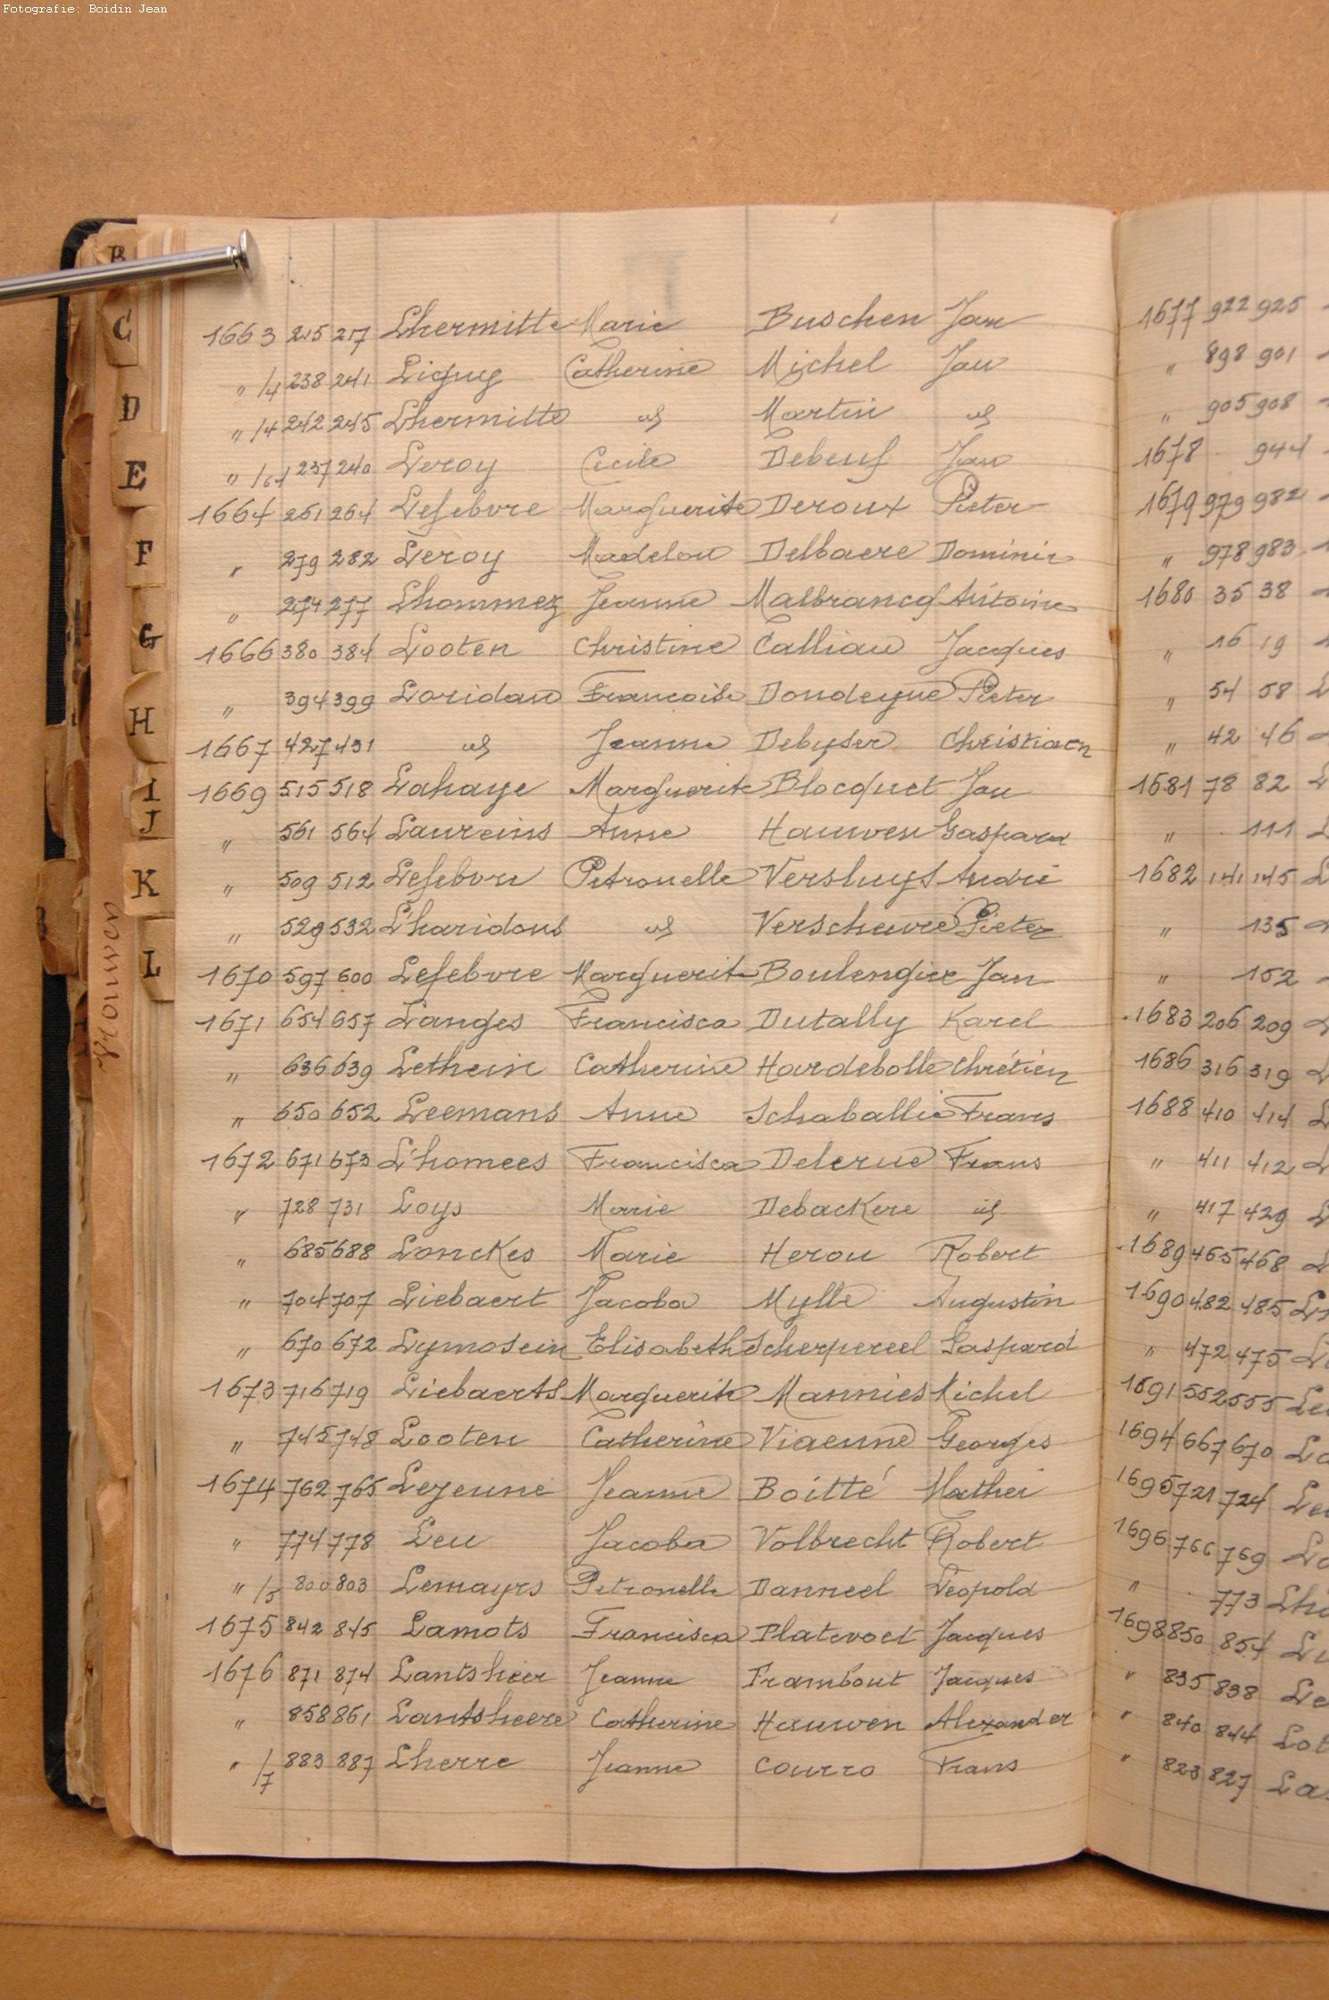 Fotografie: Boidin Jean
B
C
D
E
F
G
H
I
J
K
L
Vrouwen
1663 215 217 Lhermitte Marie Buschen Jan
" /4 238 241 Ligny Catherine Michel Jan
" /4 242 245 Lhermitte id Martin id
" 237 240 Leroy Cecile Debeuf Jan
1664 261 264 Lefebvre Marguerite Deroux Pieter
" 279 282 Leroy Madelon Delbaere Dominic
" 274 277 Lhommez Jeanne Malbrancq Antoine
1666 380 384 Looten Christine Calliau Jacques
" 394 399 Loridan Francoise Dondeyne Pieter
1667 427 431 id Jeanne Debyser Christiaen
1669 515 518 Lahaye Marguerite Blocquet Jan
" 561 564 Laureins Anne Hauwen Gaspard
" 509 512 Lefebvre Petronelle Versluys André
" 529 532 L'haridons id Verscheure Pieter
1670 597 600 Lefebvre Marguerite Boulengier Jan
1671 654 657 Langes Francisca Dutally Karel
" 636 639 Lethein Catherine Hardebolle Chrétien
" 650 652 Leemans Anne Schaballie Frans
1672 671 673 L'homees Francisca Delerue Frans
" 728 731 Loys Marie Debackere id
" 685 688 Lonckes Marie Herou Robert
" 704 707 Liebaert Jacoba Mylle Augustin
" 670 672 Lymosein Elisabeth Scherpereel Gaspard
1673 716 719 Liebaerts Marguerite Mannies Michel
" 745 748 Looten Catherine Viaenne Georges
1674 762 765 Lejeune Jeanne Boitté Mathei
" 774 778 Leu Jacoba Volbrecht Robert
" /5 800 803 Lemayrs Petronelle Danneel Leopold
1675 842 845 Lamots Francisca Platevoet Jacques
1676 871 874 Lantsheer Jeanne Frambout Jacques
" 858 861 Lantsheere Catherine Hauwen Alexander
" /7 883 887 Lherre Jeanne Courro Frans
1677 922 925
" 898 901
" 905 908
1678 944
1679 979 982
" 978 983
1680 35 38
" 16 19
" 54 58
" 42 46
1681 78 82
" 111
1682 141 145
" 135
" 152
1683 206 209
1686 316 319
1688 410 414
" 411 412
" 417 429
1689 465 468
1690 482 485
" 472 475
1691 552 555
1694 667 670
1695 721 724
1696 766 769
" 773
1698 850 854
" 835 838
" 840 844
" 823 827